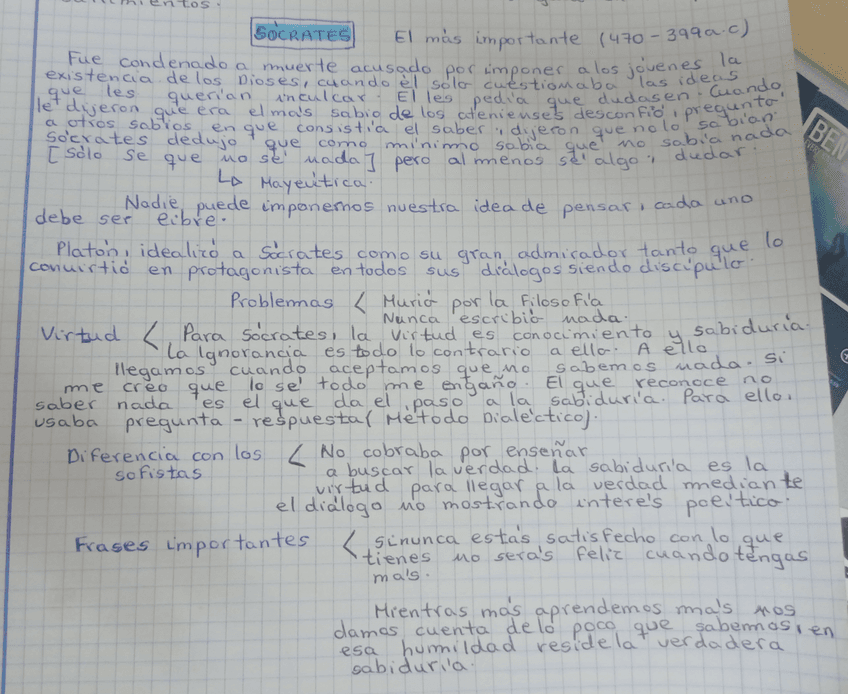 SÓCRATES El más importante (470-399 a.c)
Fue condenado a muerte acusado por imponer a los jóvenes la
existencia de los Dioses, cuando él sólo cuestionaba las ideas
que les querían inculcar. El les pedía que dudasen. Cuando
le dijeron que era el más sabio de los atenienses desconfió, preguntó
a otros sabios en que consistía el saber, dijeron que no lo sabían
Sócrates dedujo que como mínimo sabía que no sabía nada
[Sólo se que no sé nada] pero al menos sé algo, dudar.
↳ Mayeútica.
Nadie puede imponernos nuestra idea de pensar, cada uno
debe ser libre.
Platón, idealizó a Sócrates como su gran admirador tanto que lo
convirtió en protagonista en todos sus diálogos siendo discípulo.
Problemas < Murió por la Filosofía
Nunca escribió nada.
Virtud < Para Sócrates, la virtud es conocimiento y sabiduría.
La Ignorancia es todo lo contrario a ello. A ello
llegamos cuando aceptamos que no sabemos nada. Si
me creo que lo sé todo me engaño. El que reconoce no
saber nada es el que da el paso a la sabiduría. Para ello,
usaba pregunta - respuesta (Método Dialéctico).
Diferencia con los sofistas < No cobraba por enseñar
a buscar la verdad. La sabiduría es la
virtud para llegar a la verdad mediante
el diálogo no mostrando interés político.
Frases importantes < Si nunca estás satisfecho con lo que
tienes no serás feliz cuando tengas
más.
Mientras más aprendemos más nos
damos cuenta de lo poco que sabemos, en
esa humildad reside la verdadera
sabiduría.
BEN